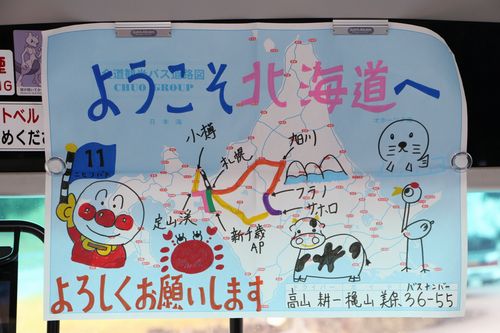 ようこそ北海道へ
道観光バス道路図
CHUO GROUP
日本海
小樽
札幌
旭川
11
フラノ
サホロ
定山渓
新千歳
AP
よろしくお願いします
バスナンバー
高山 耕一 梶山 美保 36-55
NG
トベル
めくださ